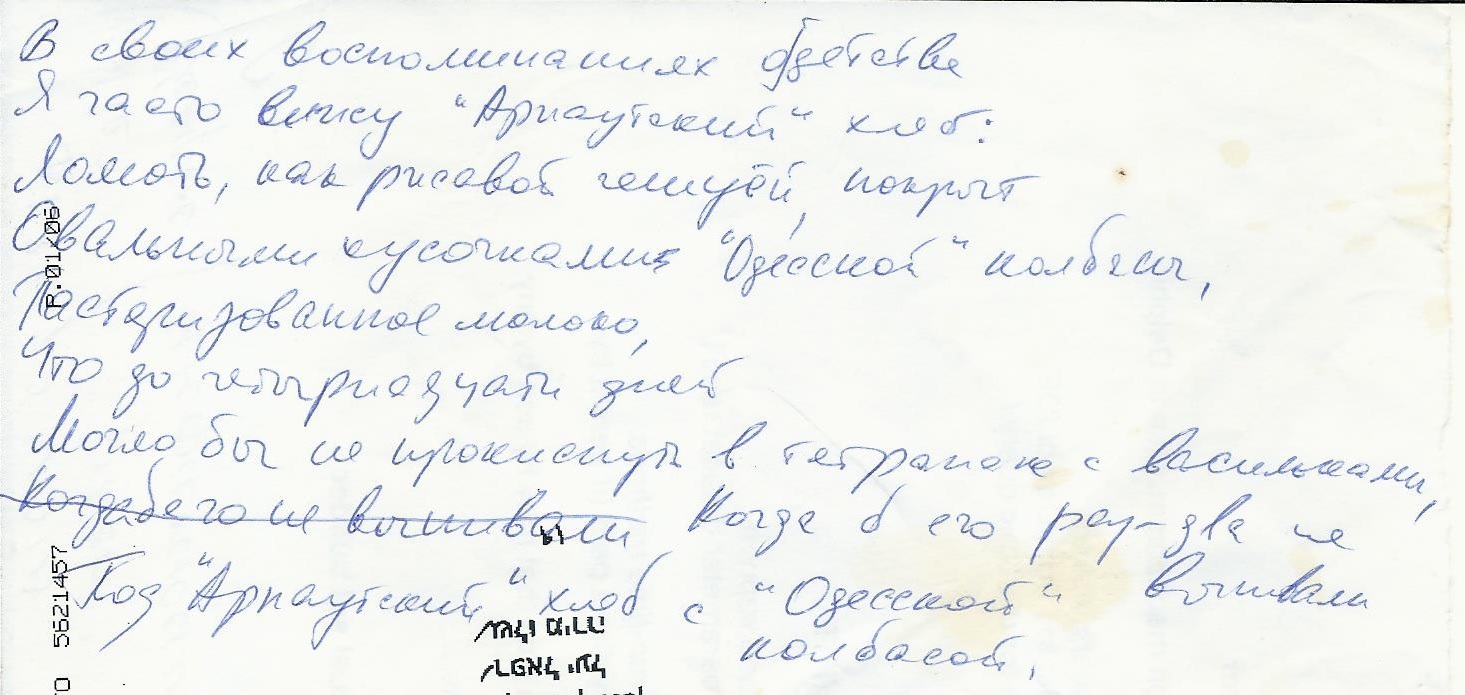 В своих воспоминаниях о детстве
Я часто вижу "Арнаутский" хлеб:
Ломоть, как рисовой чешуёй, покрыт
Овальными кусочками "Одесской" колбасы,
Пастеризованное молоко,
Что до четырнадцати дней
Могло бы не прокиснуть в тетрапаке с васильками,
Когда б его не выпивали Когда б его раз-два не
выпивали
Под "Арнаутский" хлеб с "Одесской"
колбасой.
P.01/06
5621457